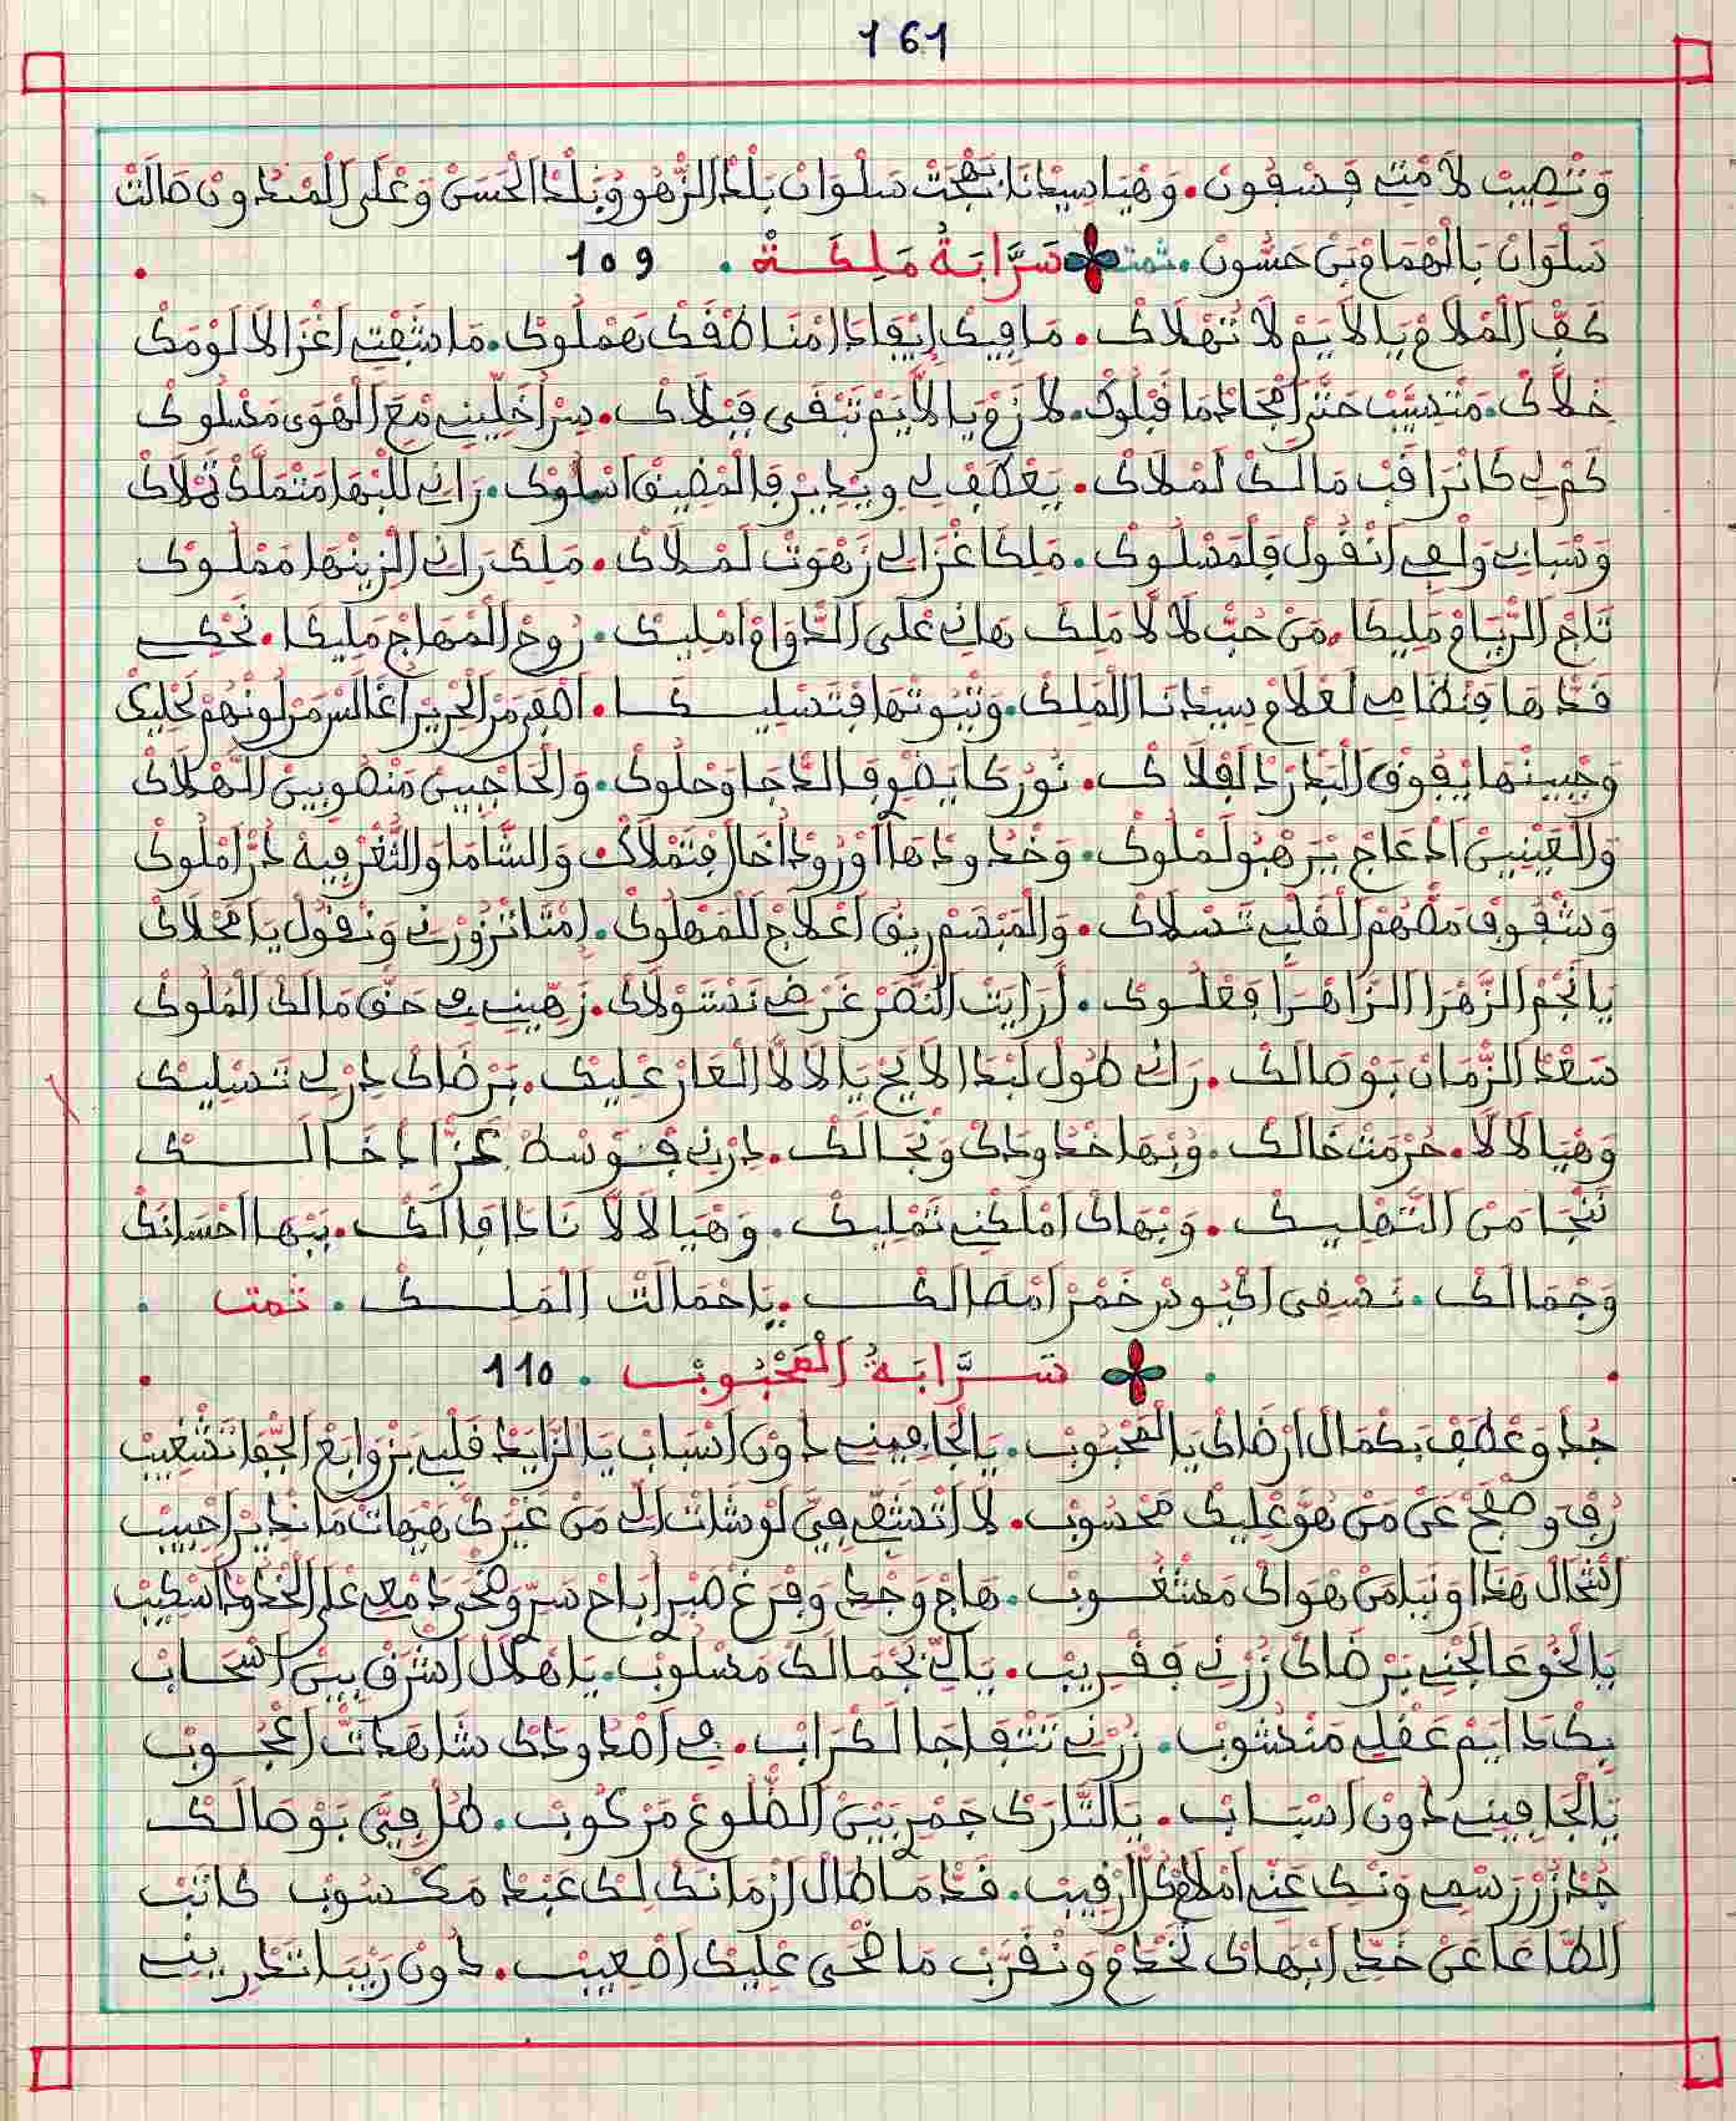 161
وَنْصِيبْ لَامْتِي فَسْفُونْ. وَهْيَا سِيدْنَا بَهْجَتْ سَلْوَانْ بَلْدْ الزّْهُو وُبَلْدْ الْحَسَنْ وَعْلَى الْمَنْدُونْ صَالَتْ
سَلْوَانْ بَالْهْمَامْ بَنْ حَسُّونْ. تمت سَرَّابَةُ مَلِكَة . 109
كَفّْ الْمْلَامْ يَا لَايَمْ لَا تَهْلَاكْ. مَا فِيكْ إِيفَادَا مْنَاصْفَكْ هَمْلُوكْ. مَا شَفْتِ اغْزَالَا لَوْمَكْ
خَلَّاكْ. مَتْسَيَّبْ حَتَّى امْجَادْمَا قَبْلُوكْ. لَازَمْ يَا لَايَمْ تَبْقَى قَبْلَاكْ. سِرْ اخَلِّينِي مْعَ الْهْوَى مَسْلُوكْ
كَمْ لِي كَانْرَاقَبْ مَالَكْ لَمْلَاكْ. يَعْطَفْ لِي وِيدِيرْ فَالْمْضِيقْ اسْلُوكْ. رَانِي لَلْبْهَا مَتْمَلَّكْ تَمْلَاكْ
وَسْبَانِي وَلْعِي انْقُولْ فَلْمَسْلُوكْ. مَلِكَا غْزَالِي زَهْوَتْ لَمْلَاكْ. مَلِكْ رَانِي الزِينْهَا مَمْلُوكْ
تَاجْ الرّْيَامْ مَلِيكَا. مَنْ حُبّْ لَالَّا مَلِكْ هَانِي عْلَى الدّْوَامْ امْلِيكْ. رُوحْ الْمْهَاجْ مَلِيكَا. نَحْكِي
قَدّْهَا فَنْظَامِي لَعْلَامْ سِيدْنَا الْمَلِكْ. وَتْيُوتْهَا فَتَسْلِيكَا. اصْفَى مَنْ الْحْرِيرْ اغَالَسْ مَنْ لُونْهُمْ تَحْلِيكْ
وَجْبِينْهَا يْفُوقْ الْبَدْرْ فْلَفْلَاكْ. نُورْ كَايْضَوِي فَالدّْجَا وَحْلُوكْ. وَالْحَاجْبِينْ مَنْصُوبِينْ الَهْلَاكْ
وَالْعَيْنِينْ ادْعَاجْ يَرْهْبُو لَمْلُوكْ. وَخْدُودْهَا اوْرُودْ اخَالْ فَتْمْلَاكْ. وَالشَّامَا وَالثّْغَرْ فِيهْ دُرّْ امْلُوكْ
وَشْفُوفْ مَصّْهُمْ الْقَلْبِي تَسْلَاكْ. وَالْمَبْسَمْ رِيقْ اعْلَاجْ لَلْمَهْلُوكْ. اِمْتَا تْزُورْنِي وَنْقُولْ يَا مَحْلَاكْ
يَا نَجْمْ الزَّهْرَا الزَّاهْرَا فَعْلُوكْ. لَرَايَتْ النّْصَرْ غَرْضِي نَسْتَوْلَاكْ. زَهِّينِي فِي حَقّْ مَالَكْ الْمْلُوكْ
سَعْدْ الزّْمَانْ بَوْصَالَكْ. رَانِي طُولْ لَبْدَا لَايَحْ يَا لَالَّا الْعَارْ عْلِيكْ. بَرْضَاكْ دِرْ لِي تَسْلِيكْ
وَهْيَا لَالَّا. حُرْمَتْ خَالَكْ. وُبْهَا خْدُودَكْ وَنْجَالَكْ. دِرْنِي فَوْسْطْ عَزّْ ادْخَالَكْ
نَنْجَا مَنْ التَّهْلِيكْ. وَبْهَاكْ امْلَكْنِي تَمْلِيكْ. وَهْيَا لَالَّا نَادَا فَالَكْ. بَبْهَا احْسَانَكْ
وَجْمَالَكْ. نَسْقَى اكْيُوسْ خَمْرْ امْصَالَكْ. يَا حْمَالَتْ الْمَلِكْ. تمت
سَرَّابَةُ الْمَحْبُوبْ . 110
جُدْ وَعْطَفْ بَكْمَالْ ارْضَاكْ يَا الْمَحْبُوبْ. يَا الْجَافِينِي دُونْ اسْبَابْ يَا الزَّايَدْ قَلْبِي بَزْوَابَعْ الْجّْفَا تَشْغِيبْ
رُفْ وَصْفَحْ عَنْ مَنْ هُوَّ عْلِيكْ مَحْسُوبْ. لَا اتْشَفِّي فِيَّ لَوْشَاتْ الِي مَنْ غَيْرَكْ هَيْهَاتْ مَا نْدِيرْ احْبِيبْ
اشْحَالْ هَذَا وَنَيَا مَنْ هْوَاكْ مَشْغُوبْ. هَاجْ وَجْدِي وَفْرَغْ صَبْرِي بَاحْ سَرّْ وَضْحَى دَمْعِي عْلَى الْخْدُودْ اسْكِيبْ
يَا الْخُو عَالَجْنِي بَرْضَاكْ زُرْنِي فَقْرِيبْ. يَا لِّي بَجْمَالَكْ مَسْلُوبْ. يَا هْلَالْ اشْرَقْ بِينْ اسْحَابْ
بِكْ دَايَمْ عَقْلِي مَنْشُوبْ. زُرْنِي تَنْتْفَاجَا لَكْرَابْ. فِي اصْدُودَكْ شَاهَدْتْ اعْجُوبْ
يَا الْجَافِينِي دُونْ اسْبَابْ. يَا التَّارَكْ جَمْرْ بِينْ الضّْلُوعْ مَرْكُوبْ. طُلّْ فِيَّ بَوْصَالَكْ
جُدْ زُرْ رَسْمِي وَنْكِي عَنِّي امْلَامْ كُلّْ ارْقِيبْ. قَدّْ مَا طَالْ ازْمَانَكْ لِكْ عَبْدْ مَكْسُوبْ كَاتَبْ
الطَّاعَا عَنْ خَدِّي ابْهَاكْ نَخْدَمْ وَنْقَرَّبْ مَا ضْحَى عْلِيكْ اصْعِيبْ. دُونْ رَيْبَا تَدْرِينِي